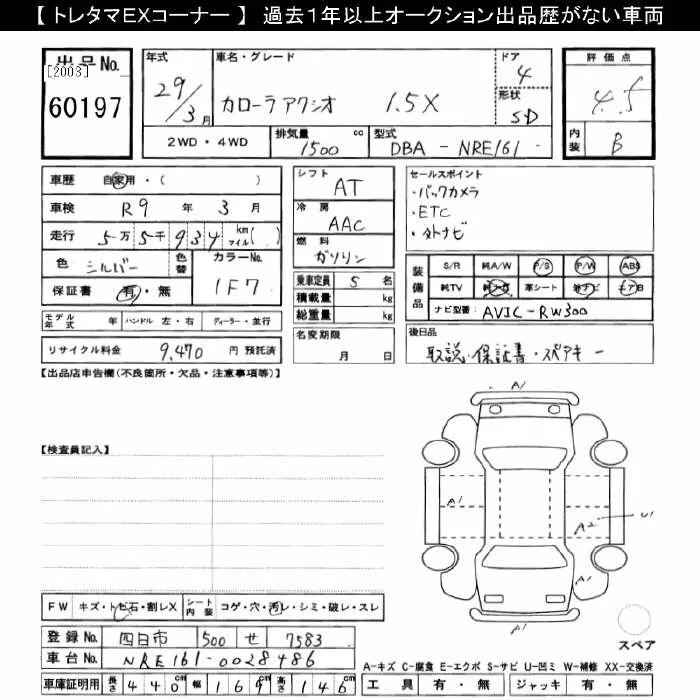 【 トレタマEXコーナー 】 過去1年以上オークション出品歴がない車両
出品No.
[2003]
60197
年式
29/3月
車名・グレード
カローラアクシオ 1.5X
ドア
4
形状
SD
評価点
4.5
内装
B
2WD・4WD
排気量
1500 cc
型式
DBA - NRE161
車歴 自家用・( )
車検 R9 年 3 月
走行 5万 5千 9 3 4 km マイル( )
色 シルバー
色替
カラーNo.
1F7
保証書 有・無
モデル年式 年 ハンドル 左・右 ディーラー・並行
リサイクル料金 9,470 円 預託済
シフト
AT
冷房
AAC
燃料
ガソリン
乗車定員 5 名
積載量 kg
総重量 kg
名変期限
月 日
セールスポイント
・バックカメラ
・ETC
・外ナビ
装備品
S/R 純A/W P/S P/W ABS
純TV 革シート エアB
ナビ型番: AVIC-RW300
後日品
取説・保証書・スペアキー
【出品店申告欄(不良箇所・欠品・注意事項等)】
【検査員記入】
A1
A1
A2
U1
A1
A1
スペア
FW キズ・トビ石・割レX
シート内装 コゲ・穴・汚レ・シミ・破レ・スレ
登録No. 四日市 500 せ 7583
車台No. NRE161-0028486
車庫証明用 長さ 440cm 幅 169cm 高さ 146cm
A-キズ C-腐食 E-エクボ S-サビ U-凹ミ W-補修 XX-交換済
工具 有・無 ジャッキ 有・無